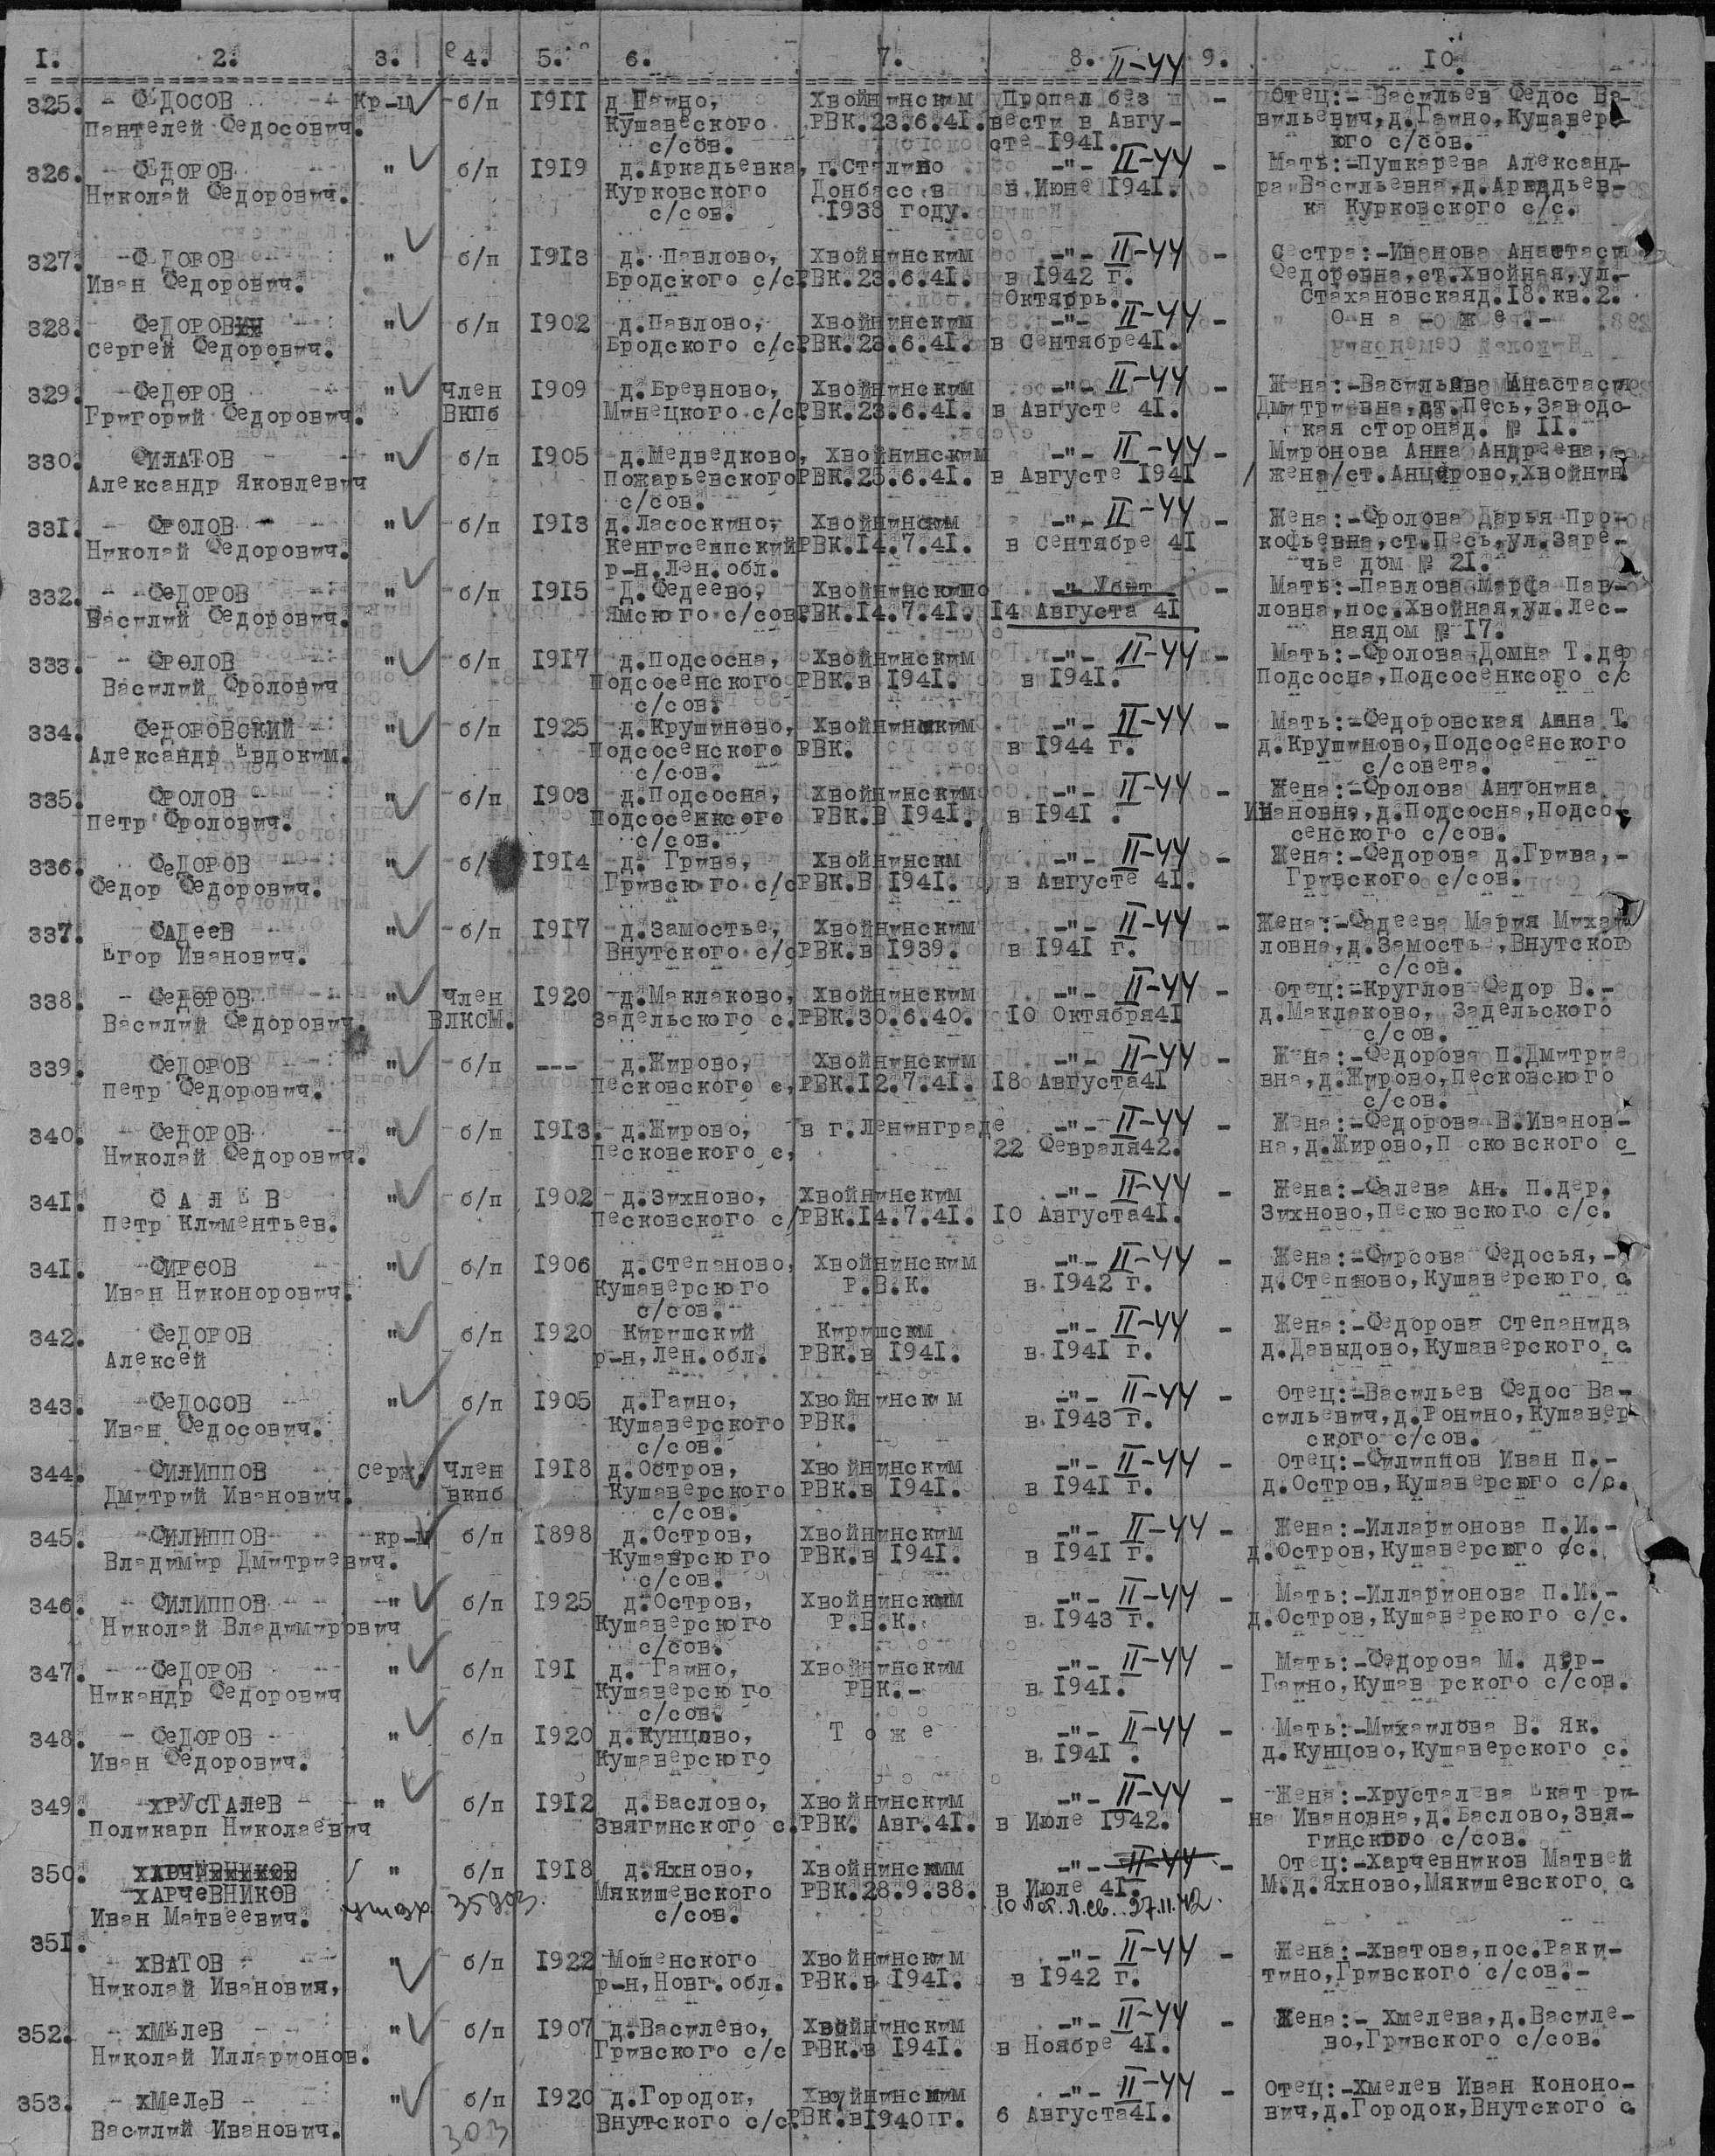 1. 2. 3. 4. 5. 6. 7. 8. 9. 10.
II-44
325. ФЕДОСОВ Кр-ц б/п 1911 д.Гаино, Хвойнинским Пропал без - Отец:-Васильев Федос Ва-
Пантелей Федосович. Кушавеского РВК.23.6.41. вести в Авгу- вильевич,д.Гаино,Кушавер-
с/сов. сте 1941. юго с/сов.
326. ФЕДОРОВ " б/п 1919 д.Аркадьевка, г.Сталино -"- II-44 - Мать:-Пушкарева Александ-
Николай Федорович. Курковского Донбасс в в Июне 1941. ра Васильевна,д.Аркадьев-
с/сов. 1938 году. ка Курковского с/с.
327. ФЕДОРОВ " б/п 1913 д. Павлово, Хвойнинским -"- II-44 - Сестра:-Иванова Анастаси
Иван Федорович. Бродского с/с. РВК.23.6.41. в 1942 г. Федоровна,ст.Хвойная,ул.-
Октябрь. Стахановскаяд.18.кв.2.
328. ФЕДОРОВ " б/п 1902 д.Павлово, Хвойнинским -"- II-44 - О н а - ж е .-
Сергей Федорович. Бродского с/с. РВК.23.6.41. в Сентябре41.
329. ФЕДОРОВ " Член 1909 д.Бревново, Хвойнинским -"- II-44 - Жена:-Васильева Анастасия
Григорий Федорович. ВКПб Минецкого с/с. РВК.23.6.41. в Августе 41. Дмитриевна,ст.Песь,Заводс-
кая сторонад. № 11.
330. ФИЛАТОВ " б/п 1905 д.Медведково, Хвойнинским -"- II-44 - Миронова Анна Андреена,
Александр Яковлевич Пожарьевского РВК.25.6.41. в Августе 1941 /жена/ст.Анцерово,Хвойнин.
с/сов.
331. ФРОЛОВ " б/п 1913 д.Ласоскино, Хвойнинским -"- II-44 - Жена:-Фролова Дарья Про-
Николай Федорович. Кенгисеппский РВК.14.7.41. в Сентябре 41 кофьевна,ст.Песь,ул.Заре-
р-н.Лен.обл. чье дом № 21.
332. ФЕДОРОВ " б/п 1915 д.Федеево, Хвойнинскимо -" Убит - Мать:-Павлова Марфа Пав-
Василий Федорович. Ямскюго с/сов. РВК.14.7.41. 14 Августа 41 ловна,пос.Хвойная,ул.Лес-
наядом № 17.
333. ФРОЛОВ " б/п 1917 д.Подсосна, Хвойнинским -"- II-44 - Мать:-Фролова Домна Т.дер
Василий Фролович Подсосенского РВК.в 1941. в 1941. Подсосна,Подсосенксого с/с
с/сов.
334. ФЕДОРОВСКИЙ " б/п 1925 д.Крушиново, Хвойнинским -"- II-44 - Мать:-Федоровская Анна Т.
Александр Евдоким. Подсосенского РВК. в 1944 г. д.Крушиново,Подсосенского
с/сов. с/совета.
335. ФРОЛОВ " б/п 1903 д.Подсосна, Хвойнинским -"- II-44 - Жена:-Фролова Антонина
Петр Фролович. Подсосенксого РВК.В 1941. в 1941 . Ивановна,д.Подсосна,Подсо-
с/сов. сенского с/сов.
336. ФЕДОРОВ " б/ 1914 д. Грива, Хвойнинским -"- II-44 - Жена:-Федорова д.Грива,-
Федор Федорович. Гривскюго с/с РВК.В 1941. в Августе 41. Гривского с/сов.
337. ФАДЕЕВ " б/п 1917 д.Замостье, Хвойнинским -"- II-44 - Жена:-Фадеева Мария Михай
Егор Иванович. Внутского с/с РВК.в 1939. в 1941 г. ловна,д.Замостье,Внутског
с/сов.
338. ФЕДОРОВ " Член 1920 д.Маклаково, Хвойнинским -"- II-44 - Отец:-Круглов Федор В.-
Василий Федорович. ВЛКСМ. Задельского с. РВК.30.6.40. 10 Октября41 д.Маклаково, Задельского
с/сов.
339. ФЕДОРОВ " б/п --- д.Жирово, Хвойнинским -"- II-44 - Жена:-Федорова П.Дмитрие
Петр Федорович. Песковского с, РВК.12.7.41. 18 Августа41 вна,д.Жирово,Песковскюго
с/сов.
340. ФЕДОРОВ " б/п 1913. д.Жирово, в г.Ленинграде -"- II-44 - Жена:-Федорова В.Иванов-
Николай Федорович. Песковского с, 22 Февраля42. на,д.Жирово,П сковского с
341. Ф А Л Е В " б/п 1902 д.Зихново, Хвойнинским -"- II-44 - Жена:-Фалева Ан. П.дер.
Петр Климентьев. Песковского с/ РВК.14.7.41. 10 Августа41. Зихново,Песковского с/с.
341. ФИРСОВ " б/п 1906 д.Степаново, Хвойнинским -"- II-44 - Жена:-Фирсова Федосья,-
Иван Никонорович. Кушаверскюго Р.В.К. в 1942 г. д.Степаново,Кушаверскюго с.
с/сов.
342. ФЕДОРОВ " б/п 1920 Киришский Киришским -"- II-44 - Жена:-Федорова Степанида
Алексей р-н,Лен.обл. РВК.в 1941. в 1941 г. д.Давыдово,Кушаверского с.
343. ФЕДОСОВ " б/п 1905 д.Гаино, Хвойнински м -"- II-44 - Отец:-Васильев Федос Ва-
Иван Федосович. Кушаверского РВК. в 1943 г. сильевич,д.Ронино,Кушавер
с/сов. ского с/сов.
344. ФИЛИППОВ серж. Член 1918 д.Остров, Хвойнинским -"- II-44 - Отец:-Филиппов Иван П.-
Дмитрий Иванович. вкпб Кушаверского РВК.в 1941. в 1941 г. д.Остров,Кушаверскюго с/с.
с/сов.
345. ФИЛИППОВ кр-ц б/п 1898 д.Остров, Хвойнинским -"- II-44 - Жена:-Илларионова П.И.-
Владимир Дмитриевич. Кушаврскюго РВК.в 1941. в 1941 г. д.Остров,Кушаверскюго с/с.
с/сов.
346. ФИЛИППОВ " б/п 1925 д.Остров, Хвойнинским -"- II-44 - Мать:-Илларионова П.И.-
Николай Владимирович Кушаверскюго Р.В.К. в 1943 г. д.Остров,Кушаверского с/с.
с/сов.
347. ФЕДОРОВ " б/п 191 д. Гаино, Хвойнинским -"- II-44 - Мать:-Федорова М. дер-
Никандр Федорович Кушаверскюго РВК.- в 1941. Гаино,Кушав рского с/сов.
с/сов.
348. ФЕДОРОВ " б/п 1920 д.Кунцово, Т о ж е -"- II-44 - Мать:-Михаилова В. Як.
Иван Федорович. Кушаверскюго в 1941 . д.Кунцово,Кушаверского с.
349. ХРУСТАЛЕВ " б/п 1912 д.Баслово, Хвойнинским -"- II-44 - Жена:-Хрусталева Екат ри-
Поликарп Николаевич Звягинского с. РВК. Авг.41. в Июле 1942. на Ивановна,д.Баслово,Звя-
гинского с/сов.
350. ХАРЧЕВНИКОВ " б/п 1918 д.Яхново, Хвойнинским -"- II-44 - Отец:-Харчевников Матвей
ХАРЧЕВНИКОВ Мякишевского РВК.28.9.38. в Июле 41. М.д.Яхново,Мякишевского с.
Иван Матвеевич. с/сов. 27.11.42
351.
ХВАТОВ " б/п 1922 Мошенского Хвойнинским -"- II-44 - Жена:-Хватова,пос.Раки-
Николай Ивановия, р-н,Новг.обл. РВК.в 1941. в 1942 г. тино,Гривского с/сов.-
352. ХМЕЛЕВ " б/п 1907 д.Василево, Хвойнинским -"- II-44 - Жена:- Хмелева,д.Василе-
Николай Илларионов. Гривского с/с РВК.в 1941. в Ноябре 41. во,Гривского с/сов.
353. ХМЕЛЕВ " б/п 1920 д.Городок, Хвойнинским -"- II-44 - Отец:-Хмелев Иван Кононо-
Василий Иванович. Внутского с/с. РВК.в1940 г. 6 Августа41. вич,д.Городок,Внутского с.
303